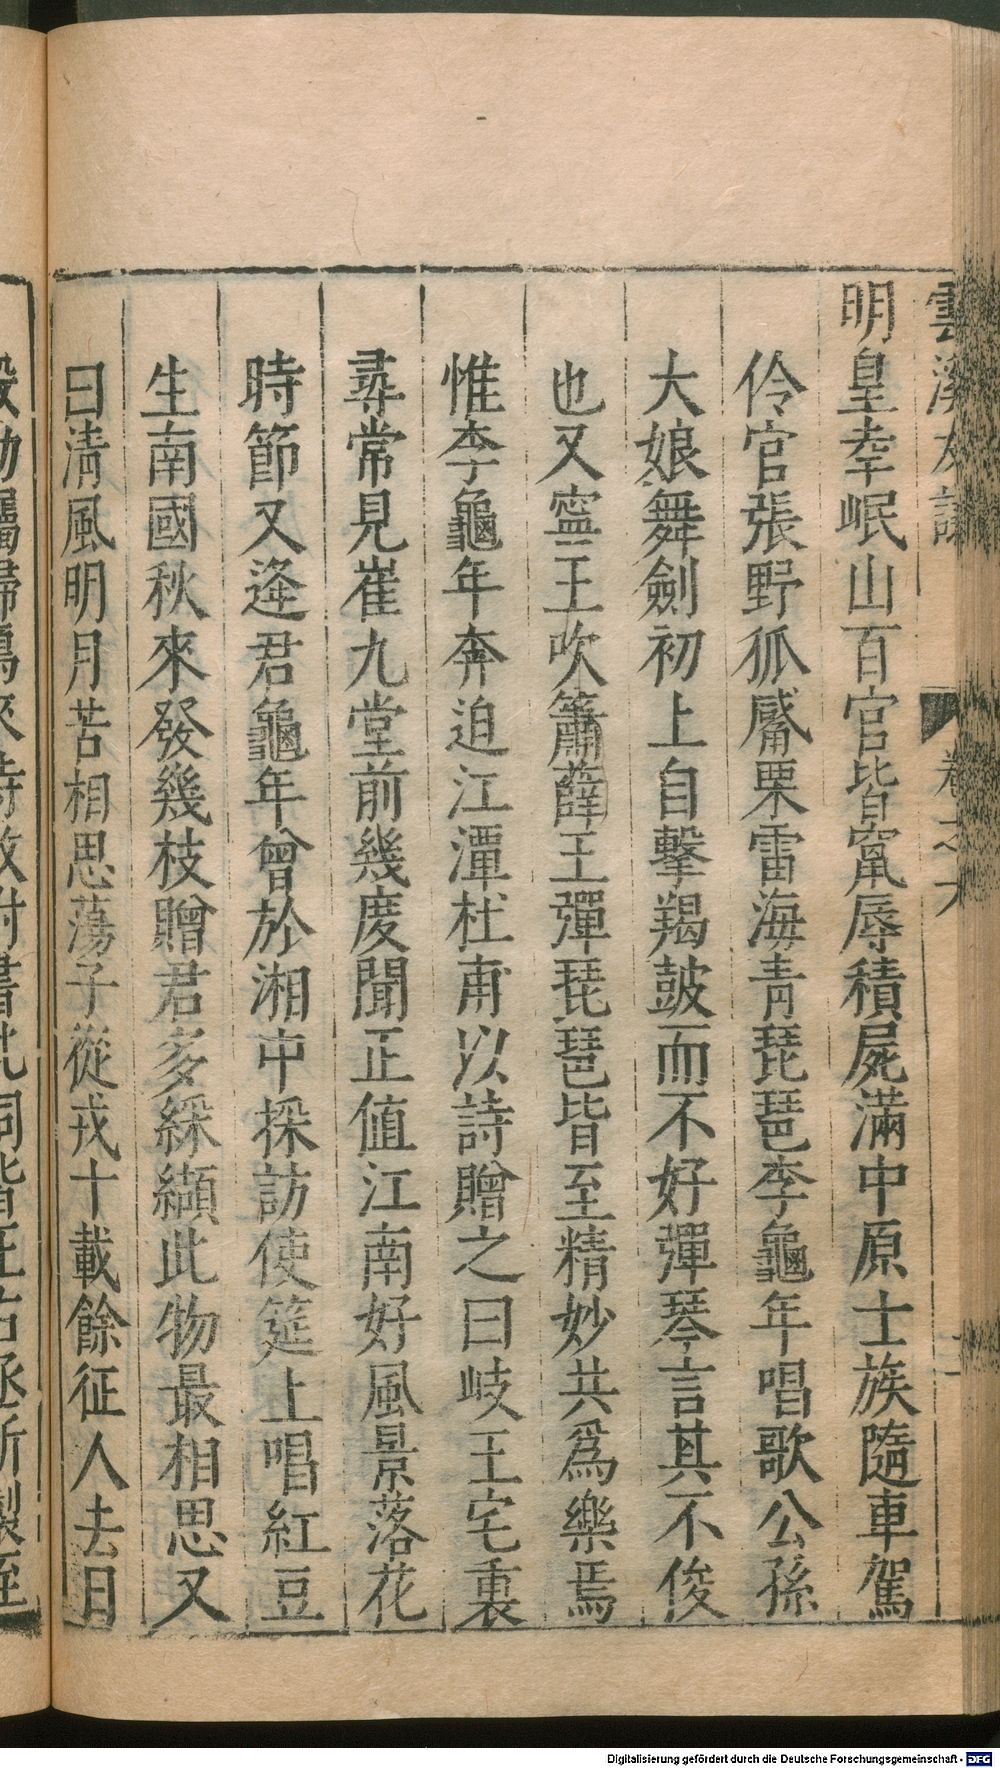 雲溪友議 卷之六
明皇幸岷山百官皆竄辱積屍滿中原士族隨車駕
伶官張野狐觱栗雷海青琵琶李龜年唱歌公孫
大娘舞劍初上自擊羯鼓而不好彈琴言其不俊
也又寧王吹簫薛王彈琵琶皆至精妙共爲樂焉
惟李龜年奔迫江潭杜甫以詩贈之曰岐王宅裏
尋常見崔九堂前幾度聞正值江南好風景落花
時節又逢君龜年曾於湘中採訪使筵上唱紅豆
生南國秋來發幾枝贈君多綵纈此物最相思又
曰清風明月苦相思蕩子從戎十載餘征人去日
殷勤囑歸鴈來時數附書此詞皆王右丞所製至
Digitalisierung gefördert durch die Deutsche Forschungsgemeinschaft - DFG